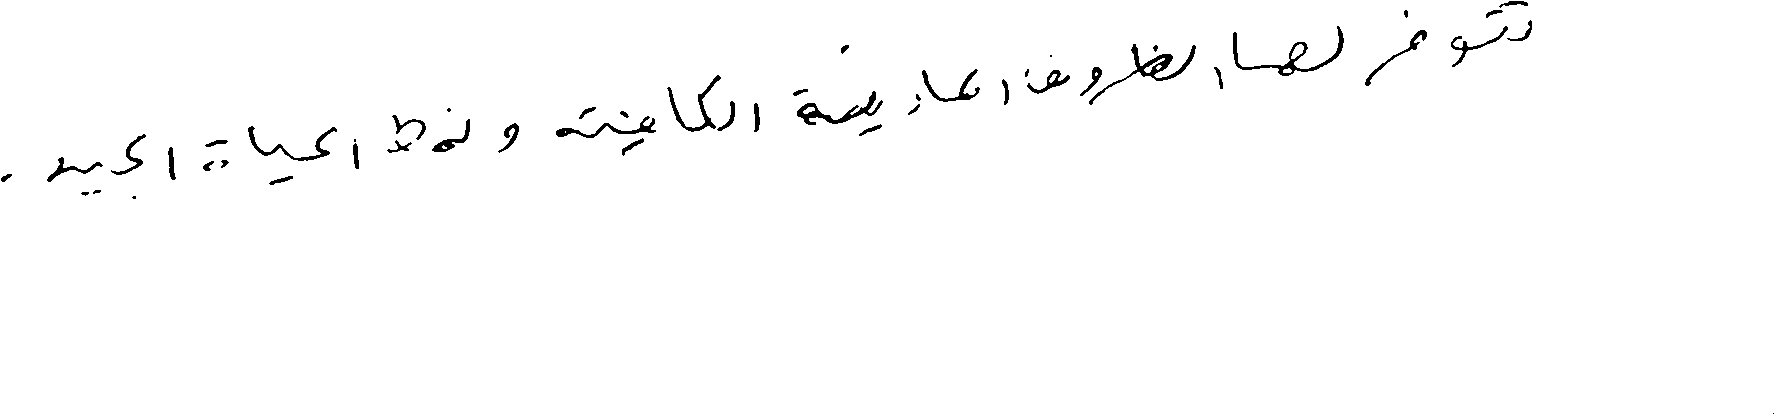 تتوفر لهما الظروف المادية الكافية ونمط الحياة الجيد.